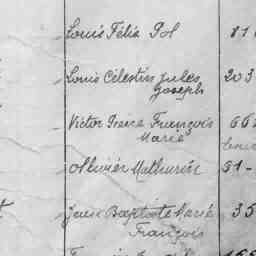 Louis Félix Pol 81
Louis Célestin Jules 203
Joseph
Victor Pierre François 66
Marie
Ollivier Mathurin 61-
Jean Baptiste Marie 35
François